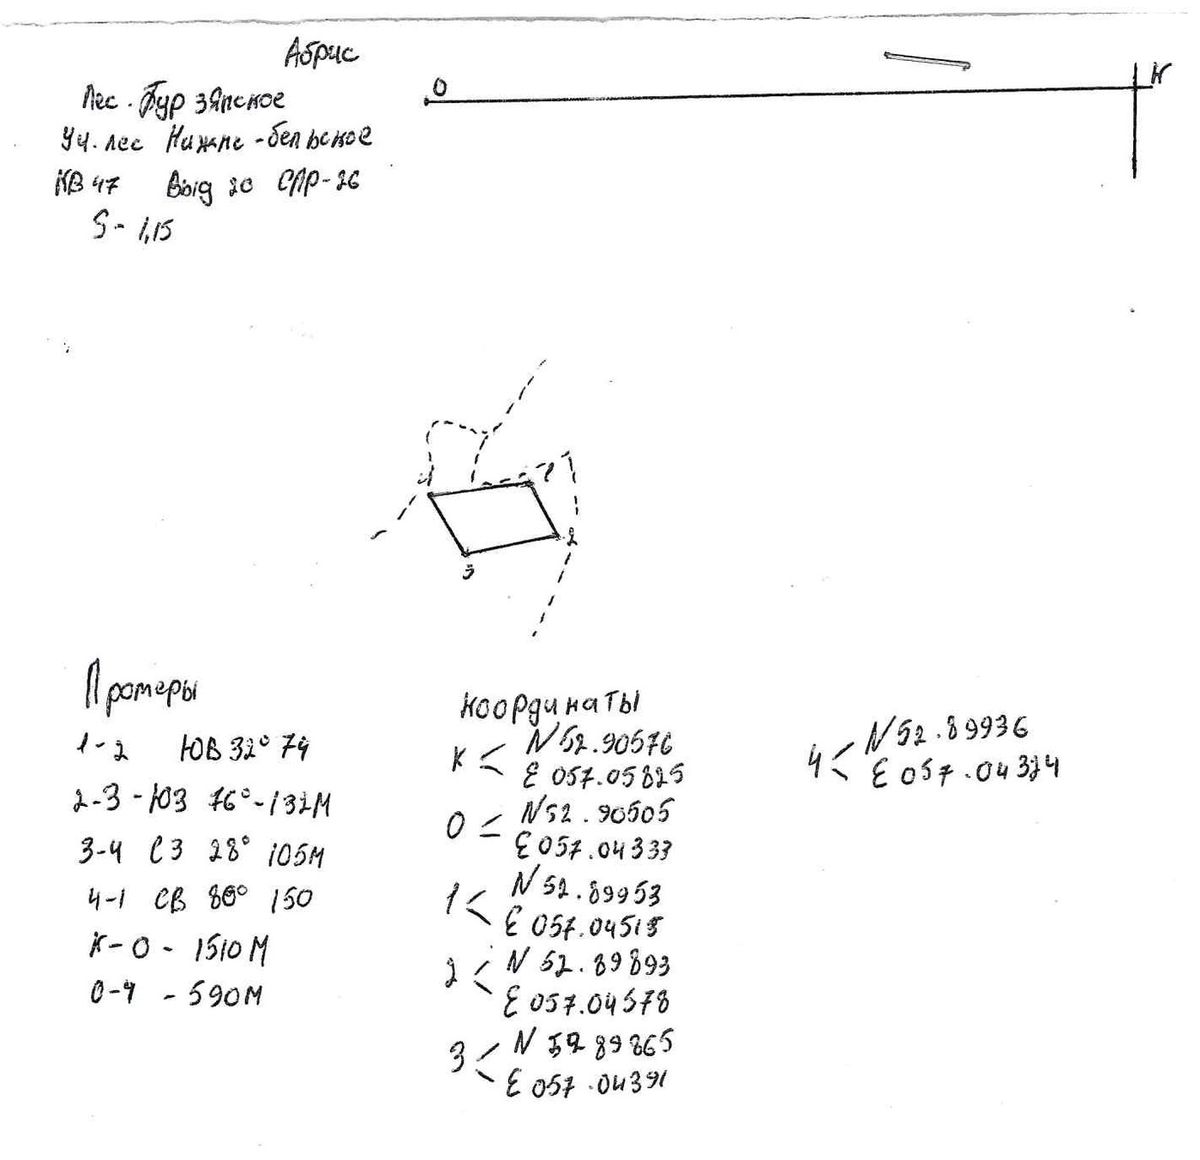 Абрис
Лес. Бурзянское
Уч. лес Нижне-бельское
КВ 47 Выд 20 СЛР-26
S - 1,15
О
К
4
1
2
3
Промеры
1-2 ЮВ 32° 74
2-3 - ЮЗ 76° - 132м
3-4 СЗ 28° 105м
4-1 СВ 80° 150
К-О - 1510м
О-4 - 590м
координаты
К < N 52.90576
E 057.05825
О < N 52.90505
E 057.04333
1 < N 52.89953
E 057.04515
2 < N 52.89893
E 057.04578
3 < N 52 89865
E 057.04391
4 < N 52.89936
E 057.04324